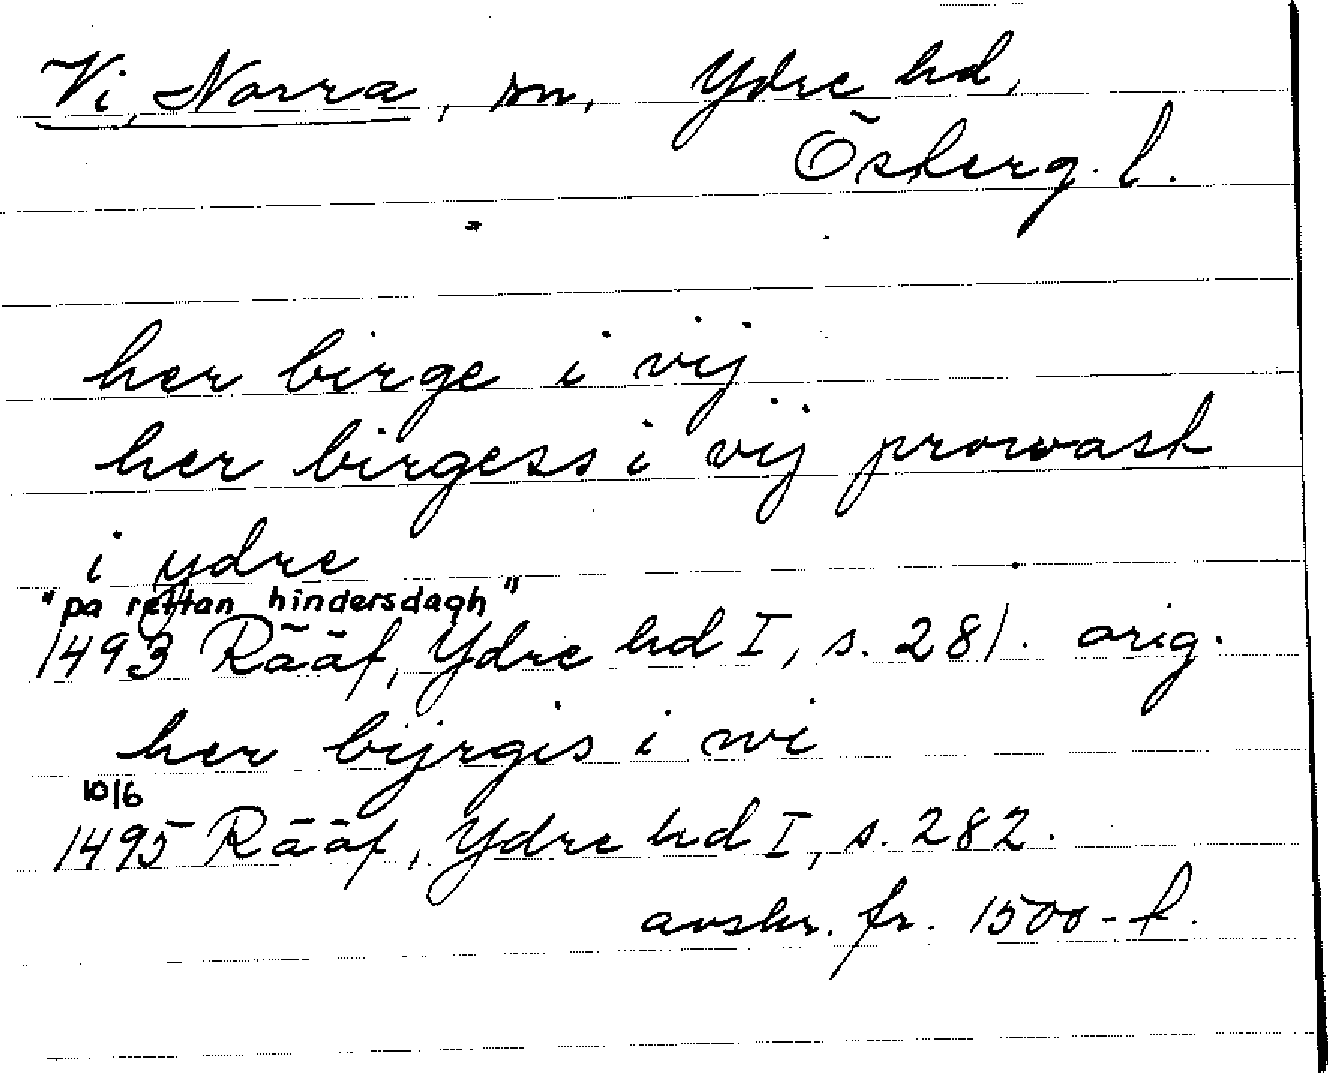 Vi, Norra, sn, Ydre hd,
Österg. l.
her birge i vij
her birgess i vij prowast
i ydre
"pa rettan hindersdagh"
1493 Rääf, Ydre hd I, s. 281. orig.
her bijrgis i wi
10/6
1495 Rääf, Ydre hd I, s. 282.
avskr. fr. 1500-t.